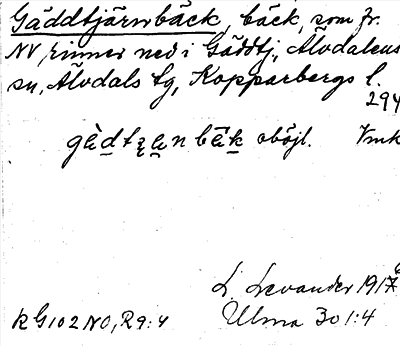 Gäddtjärnbäck, bäck, som fr.
NV, rinner ned i Gäddtj., Älvdalens
sn, Älvdals tg, Kopparbergs l.
294
gàdtʐa̲n bæ̀k oböjl. Vmk
L. Levander 1917
RG102 NO, R9:4 Ulma 301:4